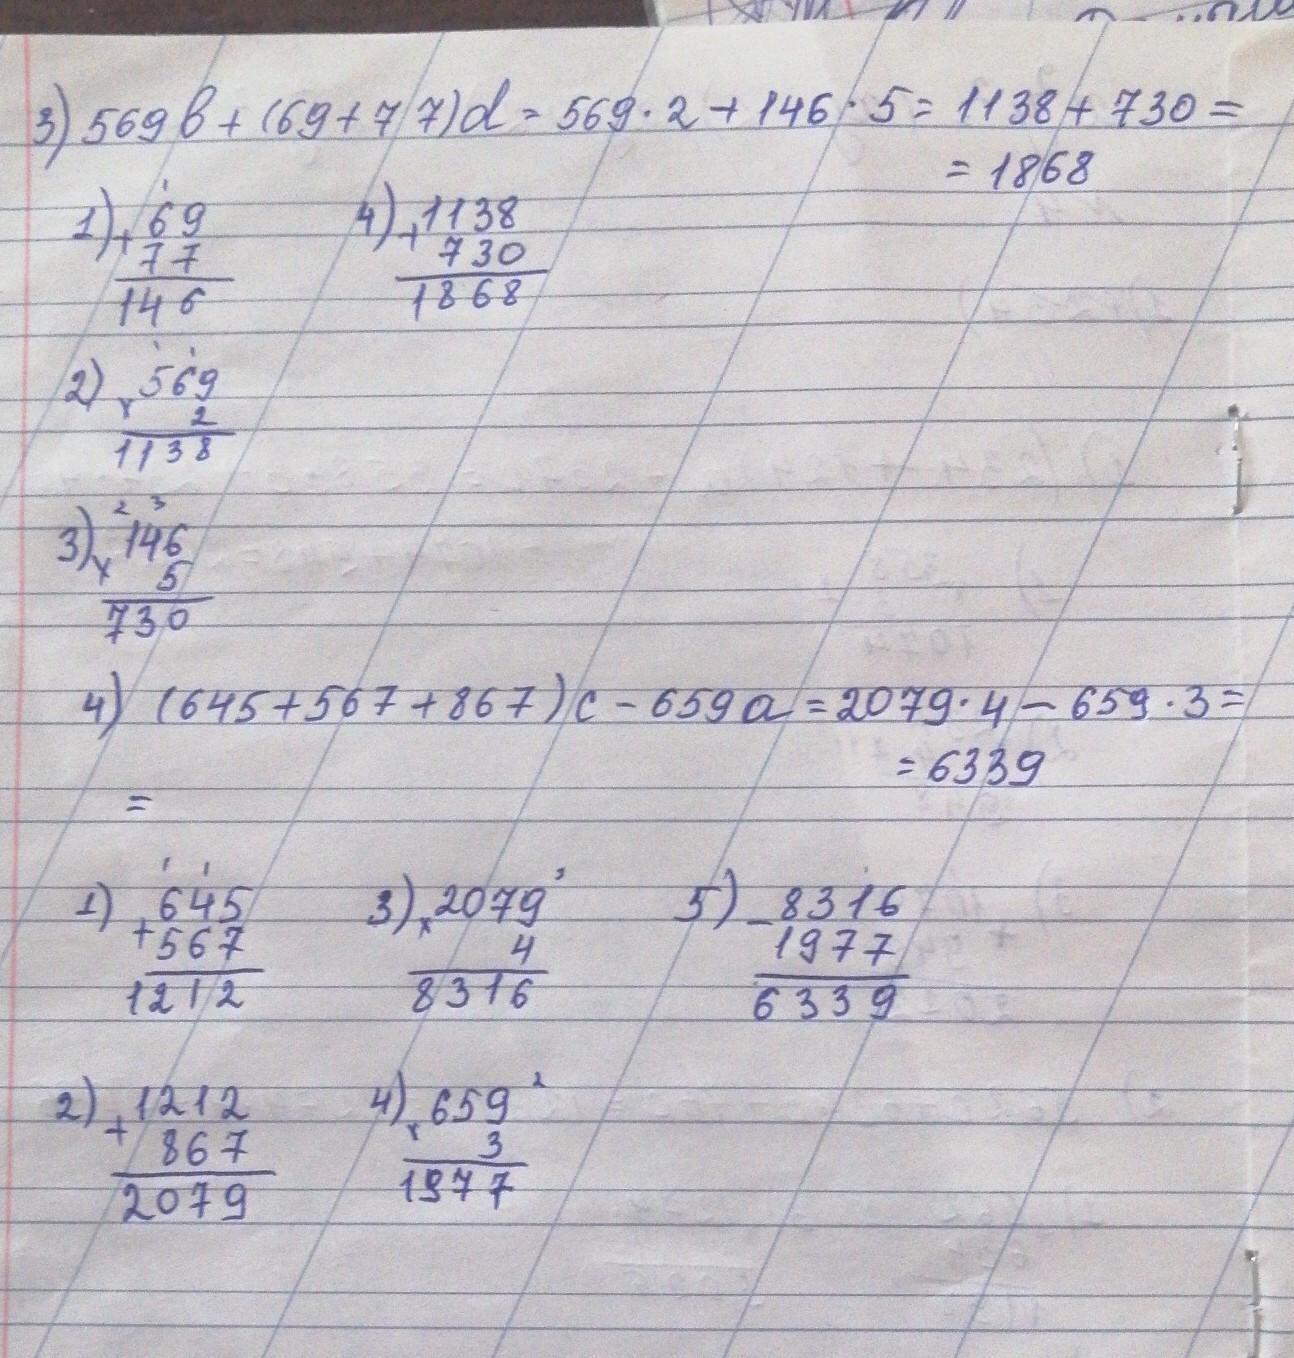 3) 569b + (69+77)d = 569·2+146·5 = 1138+730 =
= 1868
1) + 69
77
146
4) + 1138
730
1868
2) x 569
2
1138
3) x 146
5
730
4) (645+567+867)c - 659a = 2079·4 - 659·3 =
= 6339
=
1) + 645
567
1212
3) x 2079
4
8316
5) - 8316
1977
6339
2) + 1212
867
2079
4) x 659
3
1977